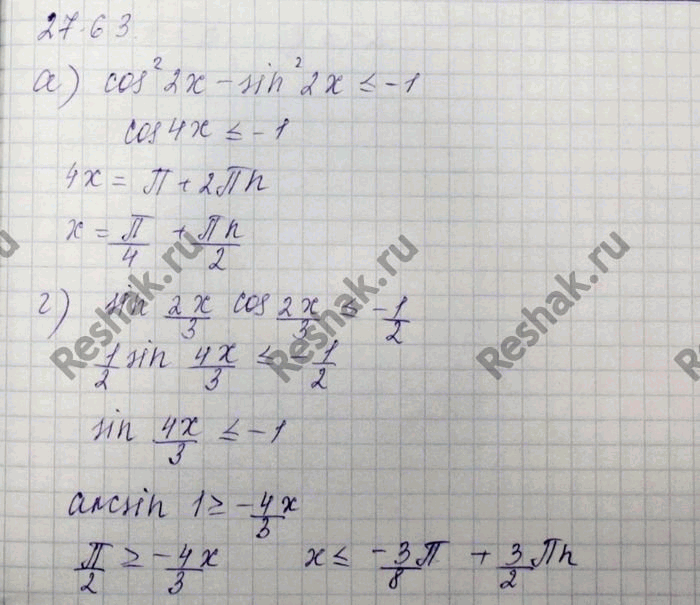 27.63.
а) cos² 2x − sin² 2x ≤ −1
cos 4x ≤ −1
4x = π + 2πn
x = π/4 + πn/2
г) sin 2x/3 cos 2x/3 ≤ −1/2
1/2 sin 4x/3 ≤ −1/2
sin 4x/3 ≤ −1
arcsin 1 ≥ −4x/3
π/2 ≥ −4x/3 x ≤ −3/8 π + 3/2 πn
Reshak.ru
Reshak.ru
Reshak.ru